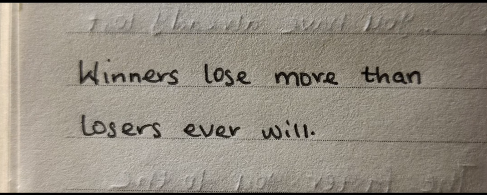 Winners lose more than
losers ever will.